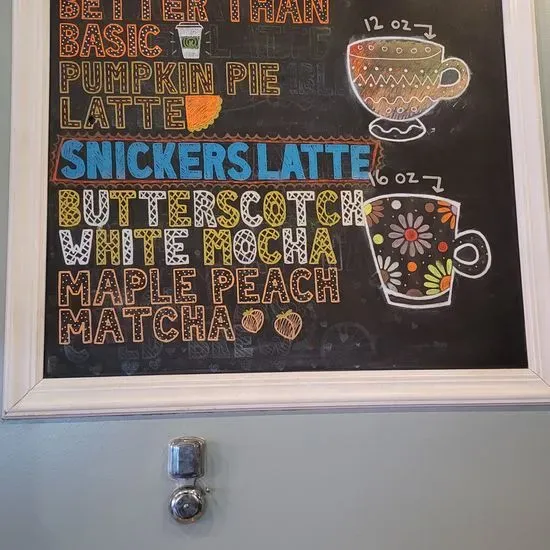 BETTER THAN
BASIC
PUMPKIN PIE
LATTE
SNICKERS LATTE
BUTTERSCOTCH
WHITE MOCHA
MAPLE PEACH
MATCHA
12 OZ
16 OZ